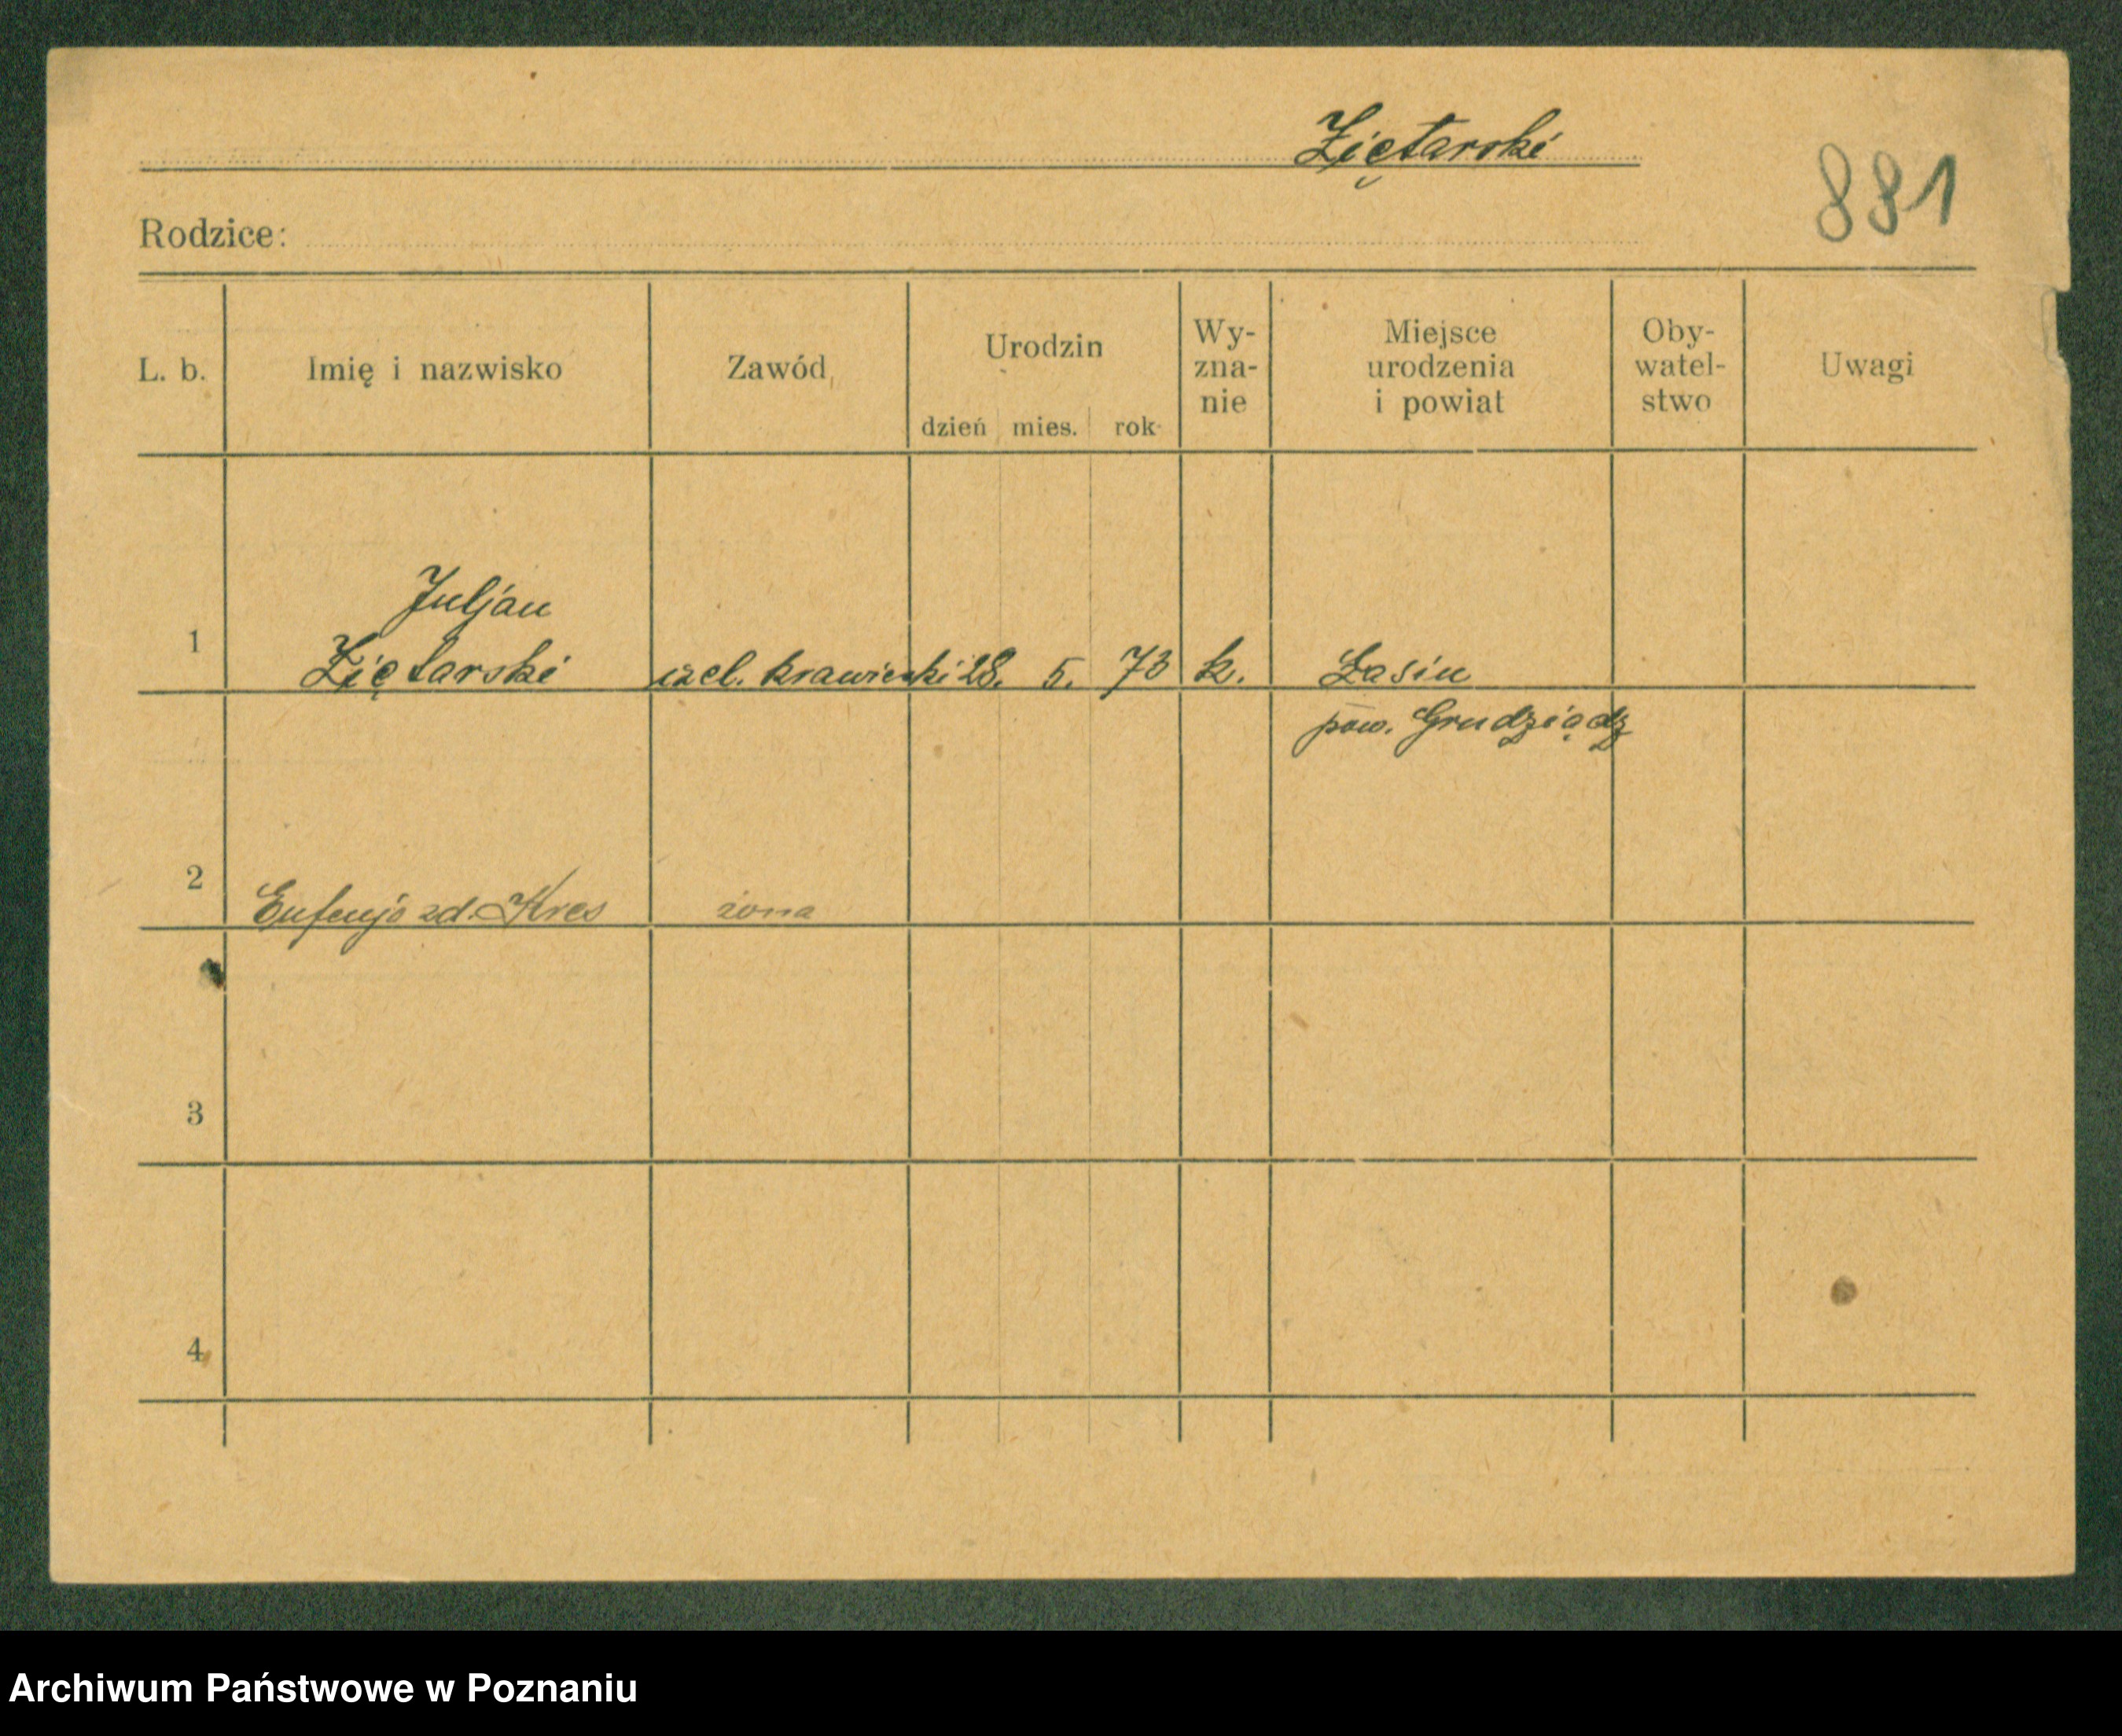 Ziętarski
881
Rodzice:
L. b. Imię i nazwisko Zawód Urodzin dzień mies. rok Wy-zna-nie Miejsce urodzenia i powiat Oby-watel-stwo Uwagi
Juljan
1 Ziętarski czel. krawiecki 28. 5. 73 k. Łasin
pow. Grudziądz
2 Eufenja zd. Kres żona
3
4
Archiwum Państwowe w Poznaniu